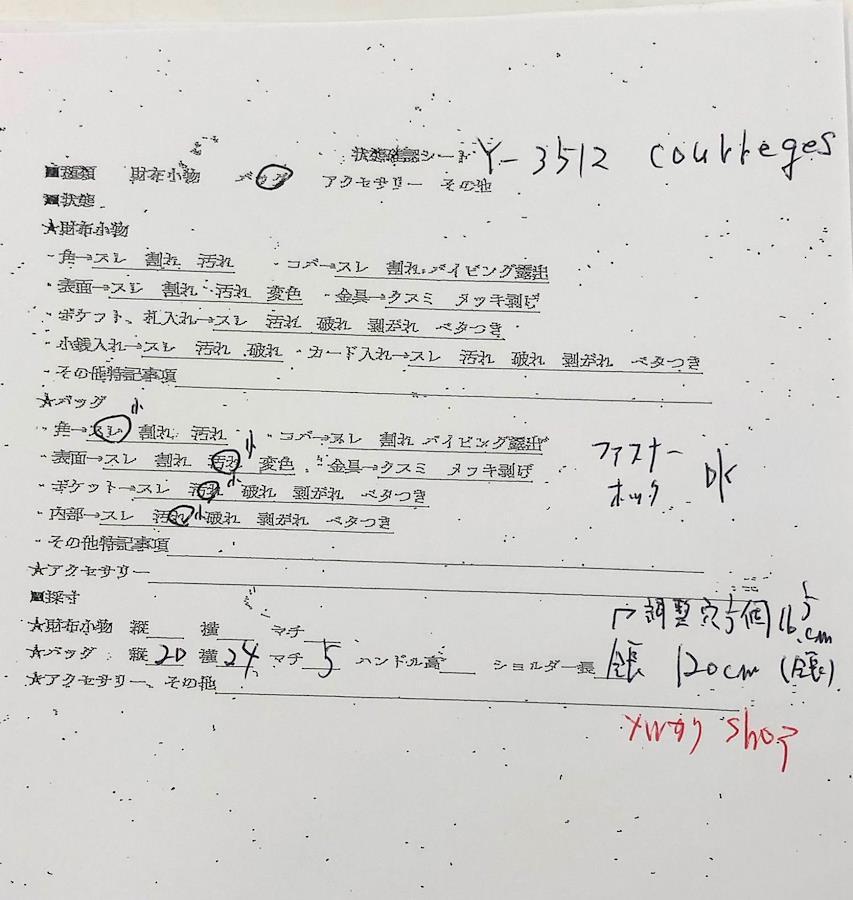 状態確認シート Y-3512 courreges
■種類 財布小物 バッグ アクセサリー その他
■状態
★財布小物
・角→スレ 割れ 汚れ ・コバ→スレ 割れ パイピング露出
・表面→スレ 割れ 汚れ 変色 ・金具→クスミ メッキ剥げ
・ポケット、札入れ→スレ 汚れ 破れ 剥がれ ベタつき
・小銭入れ→スレ 汚れ 破れ ・カード入れ→スレ 汚れ 破れ 剥がれ ベタつき
・その他特記事項
★バッグ 小
・角→スレ 割れ 汚れ ・コバ→スレ 割れ パイピング露出
小 ファスナー
・表面→スレ 割れ 汚れ 変色 ・金具→クスミ メッキ剥げ
小 ホック OK
・ポケット→スレ 汚れ 破れ 剥がれ ベタつき
・内部→スレ 汚れ 小 破れ 剥がれ ベタつき
・その他特記事項
★アクセサリー
■採寸
調整穴5個 cm
★財布小物 縦 横 マチ
★バッグ 縦 20 横 24 マチ 5 ハンドル高 ショルダー長 全長 120cm (全長)
★アクセサリー、その他
shop